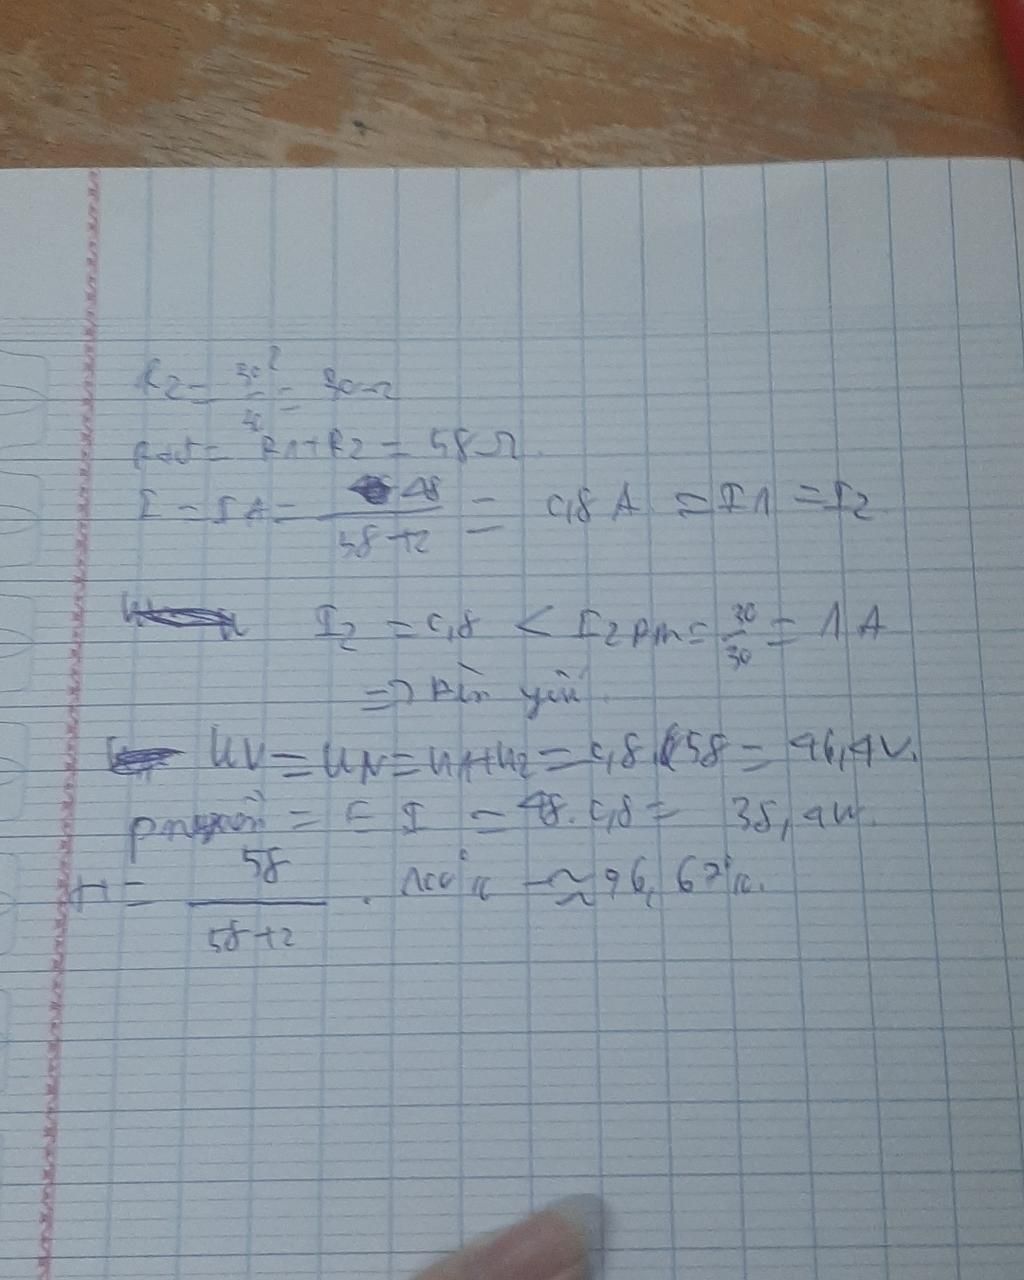 R2 = 30²/30 = 30Ω
Rtđ = R1+R2 = 58Ω.
I = IA = 48/58+2 = 0,8 A = I1 = I2
I2 = 0,8 < I2đm = 30/30 = 1 A
=> đèn yếu
UV = UN = U1+U2 = 0,8.58 = 46,4V.
Pnguồn = E I = 48.0,8 = 38,4W.
H = 58/58+2 . 100% ≈ 96,67%.